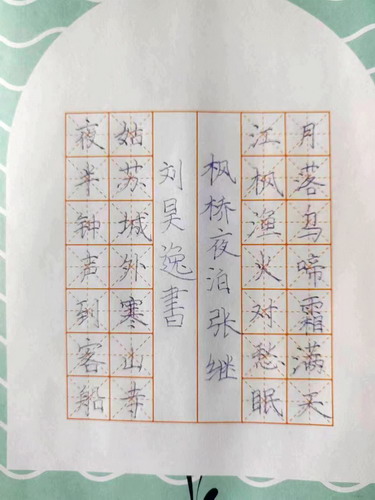 月落乌啼霜满天
江枫渔火对愁眠
枫桥夜泊张继
刘昊逸書
姑苏城外寒山寺
夜半钟声到客船